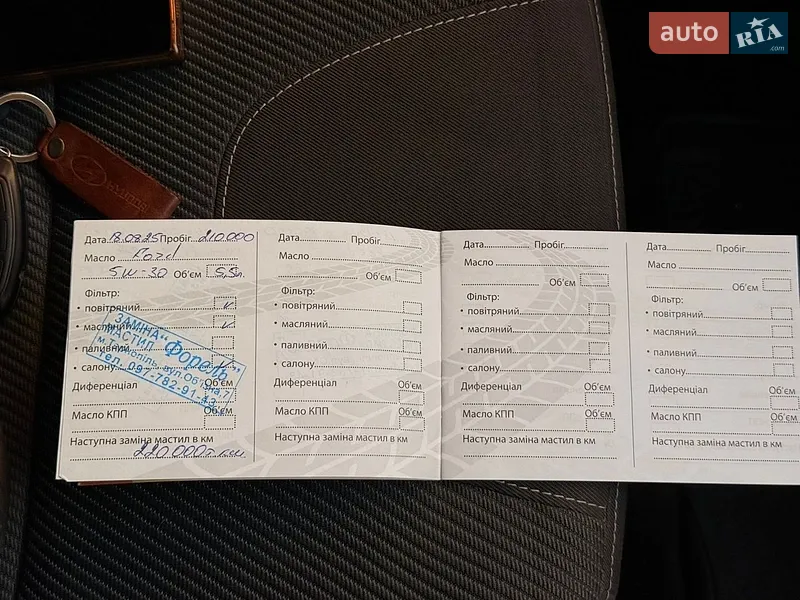 auto RIA .com
HYUNDAI
Дата 18.08.25 Пробіг 210.000
Масло Ford
5W-30 Об'єм 5,5л.
Фільтр:
• повітряний ✓
• масляний ✓
• паливний
• салону
ЗАМІНА "Форсаж"
МАСТИЛ
Диференціал Об'єм
Масло КПП Об'єм
Наступна заміна мастил в км
220.000 т. км
Дата Пробіг
Масло
Об'єм
Фільтр:
• повітряний
• масляний
• паливний
• салону
Диференціал Об'єм
Масло КПП Об'єм
Наступна заміна мастил в км
Дата Пробіг
Масло
Об'єм
Фільтр:
• повітряний
• масляний
• паливний
• салону
Диференціал Об'єм
Масло КПП Об'єм
Наступна заміна мастил в км
Дата Пробіг
Масло
Об'єм
Фільтр:
• повітряний
• масляний
• паливний
• салону
Диференціал Об'єм
Масло КПП Об'єм
Наступна заміна мастил в км